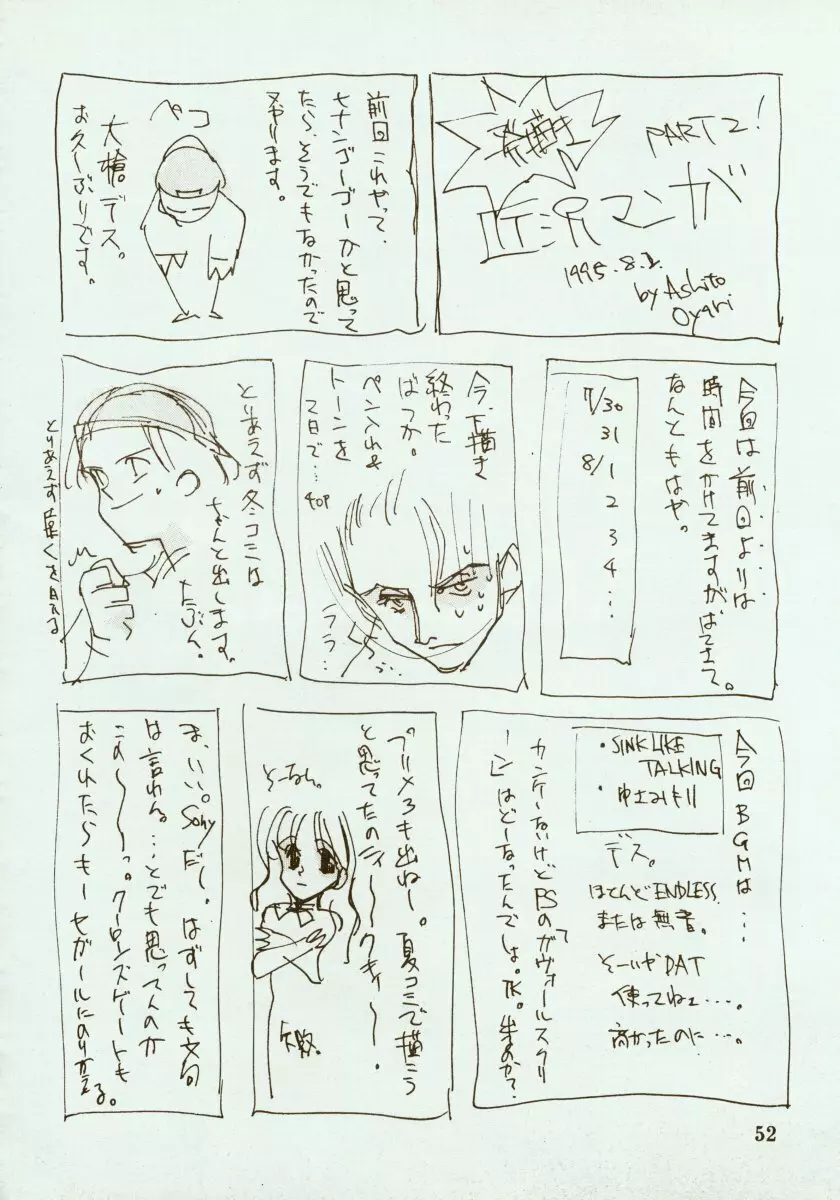 PART2!
マンガ
1995.8.2.
by Ashito
Oyari
前回これやって、
セナンゴーゴーかと思って
たら、そうでもなかったので
又やります。
ペコ
大槍デス。
お久しぶりです。
今回は前回よりは
時間をかけてますがはてさて。
なんともはや。
7/30
31
8/1
2
3
4
…
今、下描き
終わった
ばっか。
ペン入れ&
トーンを
2日で…
40P
ララ…
とりあえず冬コミは
ちゃんと出します。
たぶん。
とりあえず
今回BGMは…
・SINK LIKE
TALKING
・ゆ
デス。
ほとんどENDLESS
または無音。
そーいやDAT
使ってねェ…。
高かったのに…。
カンケーないけどPSの「ガヴォールスクリ
ーン」はどーなったんでしょ。TK。出るのか?
プリメ3も出ねー。夏コミで描こう
と思ってたのニィ〜〜クキィ〜。
そーなん。
矢散。
ま、いい。Sonyだし。はずしても文句
は言われん。…とでも思ってんのか
この〜〜〜っ。クーロンズゲートも
おくれたらもーセガールにのりかえる。
52